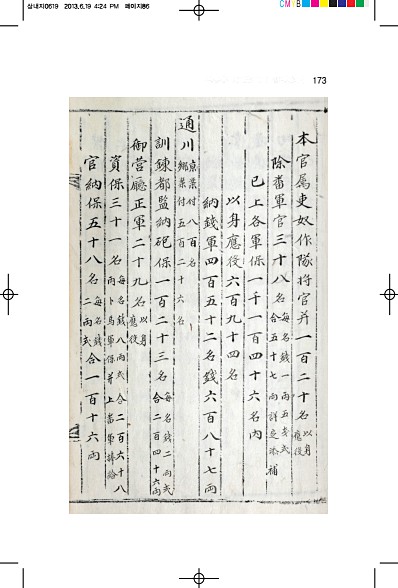 삼내지0619 2013.6.19 4:24 PM 페이지86
CMYB
173
本官属吏奴作隊将官并一百二十名以身應役
除番軍官三十八名每名錢一兩五戔式合五十七兩詳定添補
已上各軍保一千一百四十六名內
以身應役六百九十四名
納錢軍四百五十二名錢六百八十七兩
通川京案付八百名鄕案付五百二十六名
訓鍊都監納砲保一百二十三名每名錢二兩式合二百四十六兩
御營廳正軍二十九名以身應役
資保三十一名每名錢八兩式合二百六十八兩卜馬軍保并上番軍諦給
官納保五十八名每名錢二兩式合一百十六兩